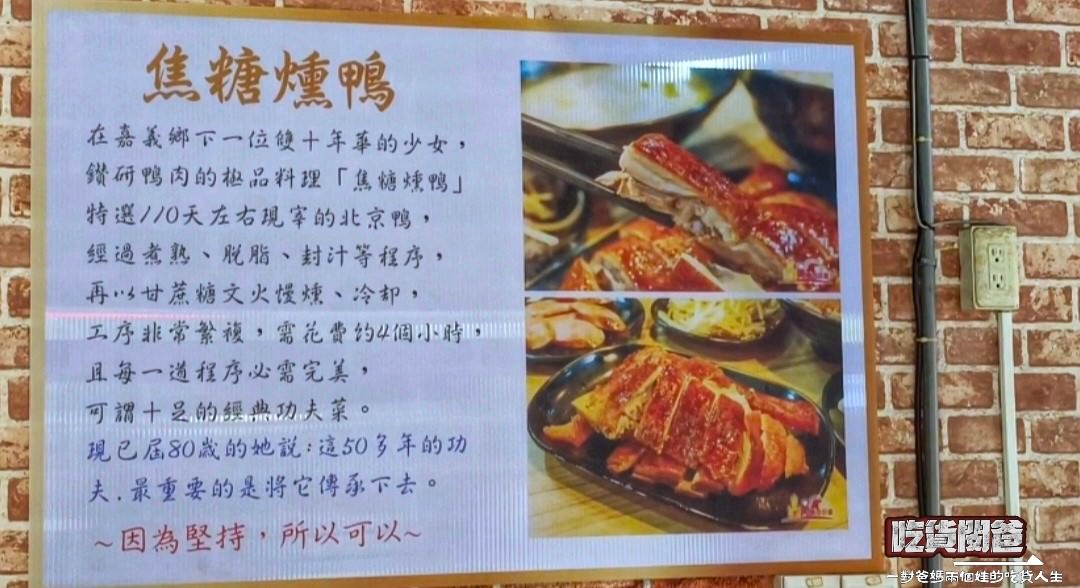 焦糖燻鴨
在嘉義鄉下一位雙十年華的少女，
鑽研鴨肉的極品料理「焦糖燻鴨」
特選110天左右現宰的北京鴨，
經過煮熟、脫脂、封汁等程序，
再以甘蔗糖文火慢燻、冷卻，
工序非常繁複，需花費約4個小時，
且每一道程序必需完美，
可謂十足的經典功夫菜。
現已屆80歲的她說:這50多年的功
夫.最重要的是將它傳承下去。
~因為堅持，所以可以~
吃貨閥爸
一對爸媽兩個娃的吃貨人生